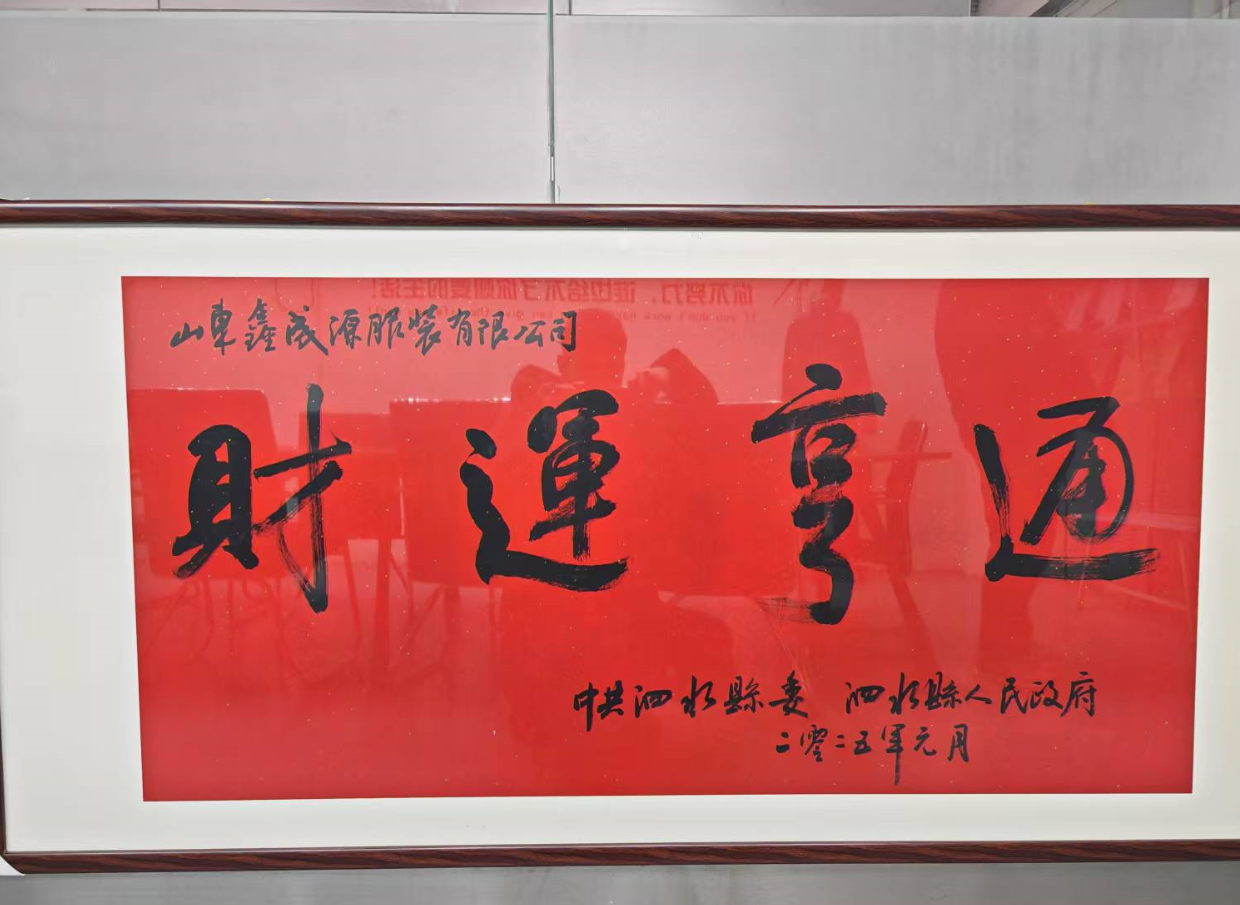 山東鑫成源服裝有限公司
財運亨通
中共泗水縣委 泗水縣人民政府
二零二五年元月